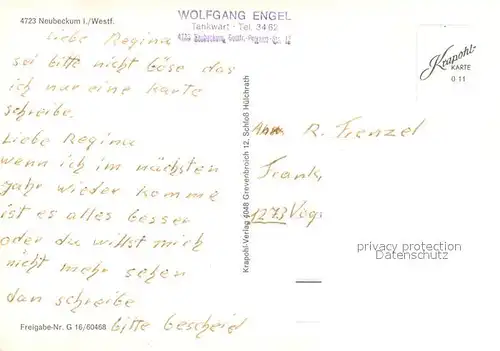 4723 Neubeckum i./Westf.
WOLFGANG ENGEL
Tankwart - Tel. 34 62
4723 Neubeckum, Gustv.-Moesch-Str. 12
Liebe Regina
sei bitte nicht böse das
ich nur eine Karte
schreibe.
Liebe Regina
wenn ich im nächsten
Jahr wieder komme
ist es alles besser
oder du willst mich
nicht mehr sehen
dan schreibe
bitte bescheid
Freigabe-Nr. G 16/60468
Krapohl-Verlag 4048 Grevenbroich 12, Schloß Hülchrath
Krapohl-
KARTE
0 11
R. Frenzel
Frank
1273 Vog
privacy protection
Datenschutz